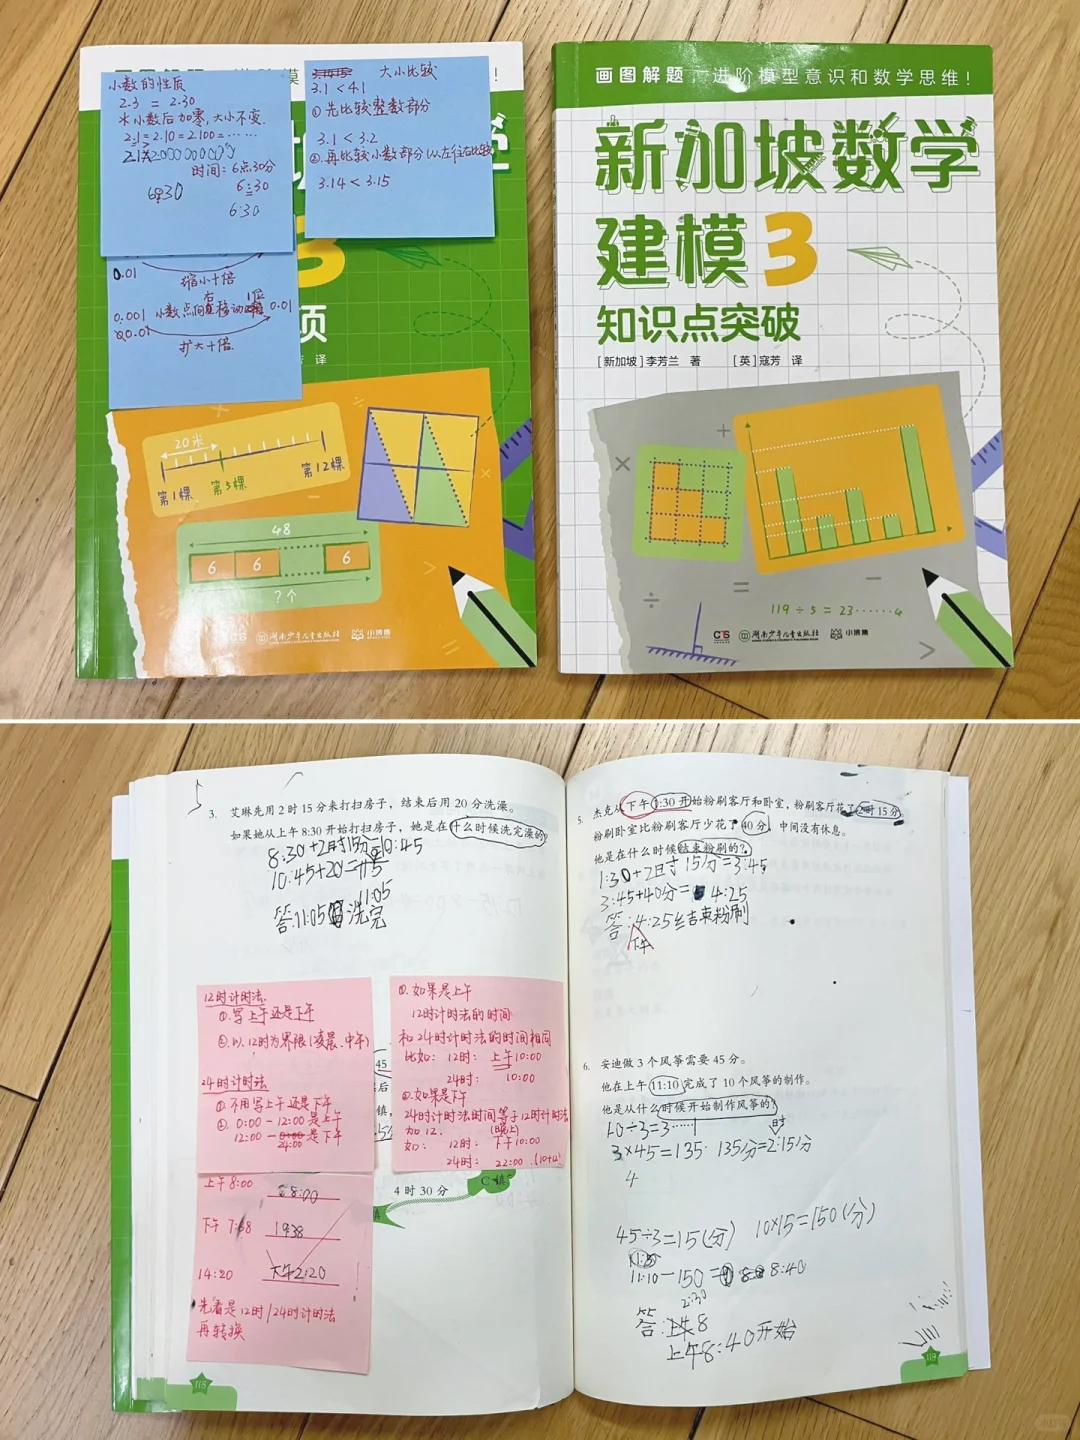 小数的性质
2.3 = 2.30
※小数后加零,大小不变.
2.1=2.10=2.100=……
时间:6点30分
6:30
6:30
6:30
大小比较
3.1 < 4.1
①先比较整数部分
3.1 < 3.2
②.再比较小数部分(从左往右比较)
3.14 < 3.15
0.01
缩小十倍
0.001
0.01
0.01
扩大十倍.
译
20米
第1棵
第5棵
第12棵
48
6 6 6
?个
湖南少年儿童出版社
小博集
画图解题,进阶模型意识和数学思维!
新加坡数学
建模3
知识点突破
[新加坡]李芳兰 著 [英]寇芳 译
119 ÷ 5 = 23……4
CS 湖南少年儿童出版社 小博集
3. 艾琳先用 2 时 15 分来打扫房子,结束后用 20 分洗澡。
如果她从上午 8:30 开始打扫房子,她是在什么时候洗完澡的?
8:30+2时15分=10:45
10:45+20=
11:05
答:11:05 洗完
12时计时法
①.写上午还是下午
②.以12时为界限(凌晨、中午)
24时计时法
①.不用写上午还是下午
②. 0:00 - 12:00 是上午
12:00 - 24:00 是下午
①.如果是上午
12时计时法的时间
和24时计时法的时间相同
比如: 12时: 上午10:00
24时: 10:00
②.如果是下午
24时计时法时间等于12时计时法
加12.
(晚上)
如: 12时: 下午10:00
24时: 22:00 .(10+12)
45
4 时 30 分
C 镇
镇
上午 8:00
下午 7:38
1938
14:20
下午2:20
先看是12时/24时计时法
再转换
118
5. 杰克从下午 1:30 开始粉刷客厅和卧室,粉刷客厅花了 2 时 15 分。
粉刷卧室比粉刷客厅少花了 40 分,中间没有休息。
他是在什么时候结束粉刷的?
1:30+2时15分=3:45
3:45+40分= 4:25
答:4:25结束粉刷
下午
6. 安迪做 3 个风筝需要 45 分。
他在上午 11:10 完成了 10 个风筝的制作。
他是从什么时候开始制作风筝的?
10÷3=3……1
3×45=135 135分=2:15分
时
4
45÷3=15(分) 10×15=150(分)
11:10-150= 8:40
2:30
答:
上午8:40开始
119